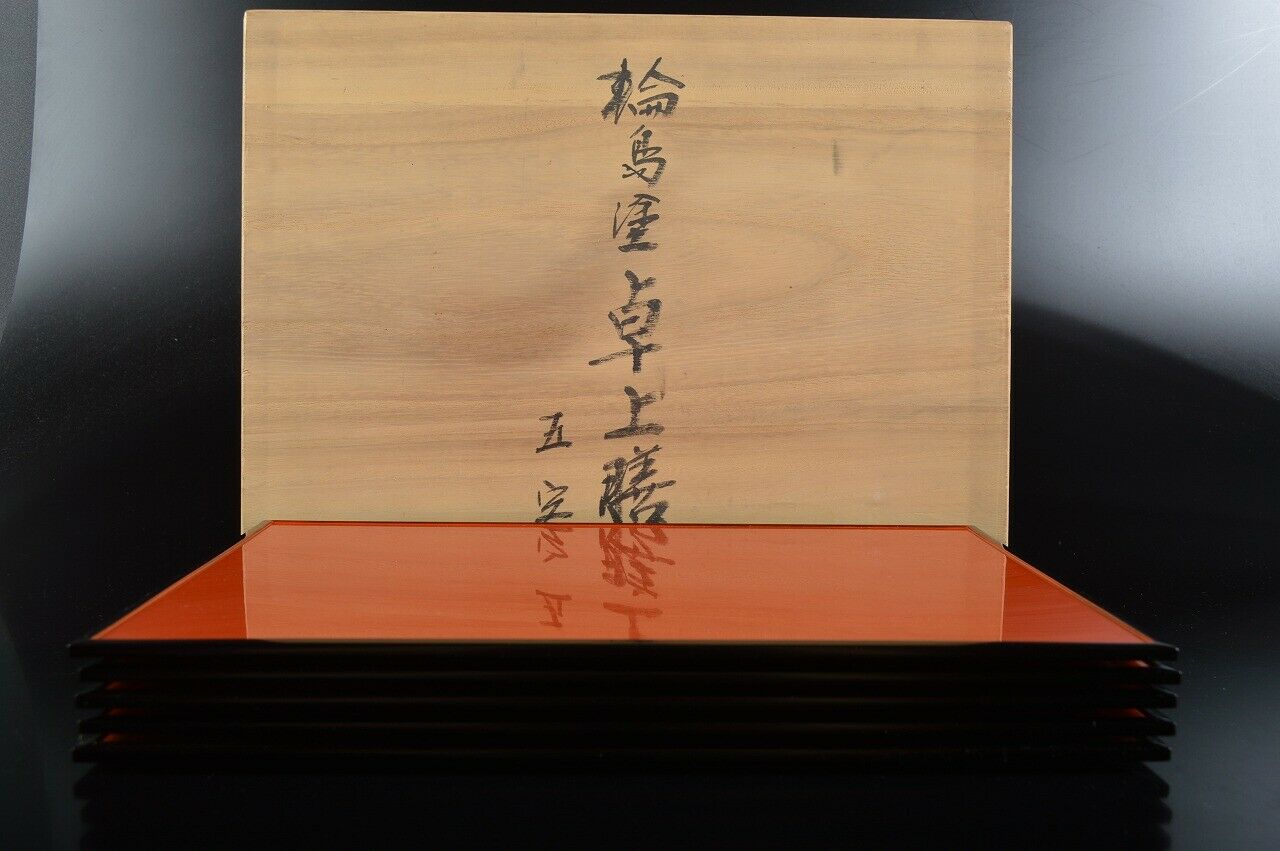 輪島塗卓上膳
五客